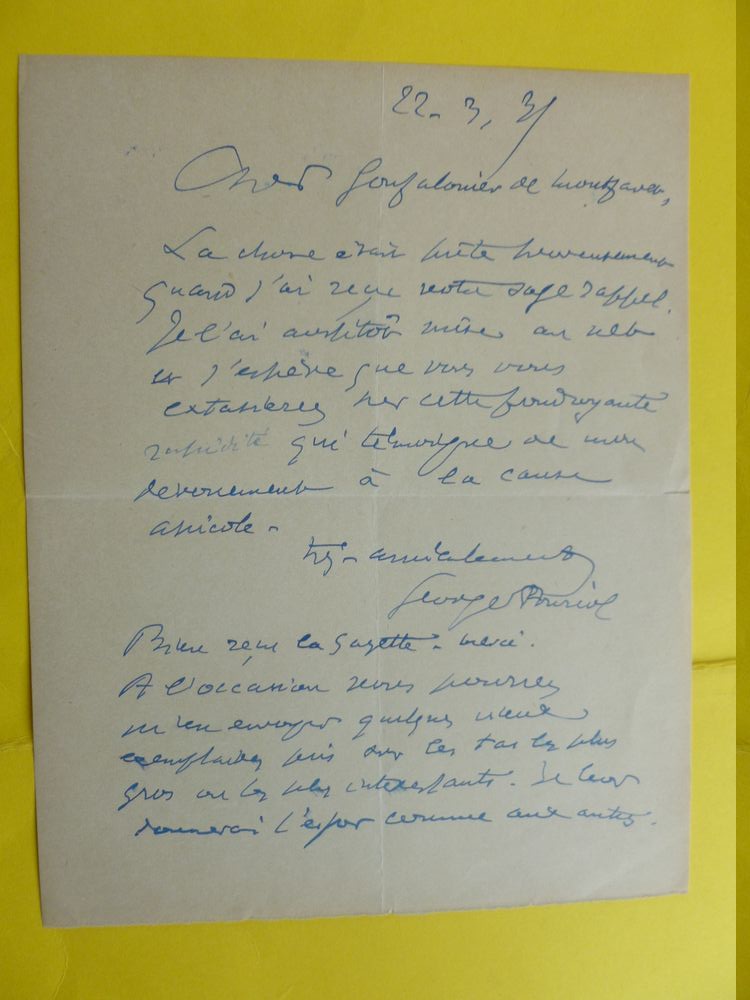 22. 3. 31
Cher Gonfalonier de
La chose était prête heureusement
quand j'ai reçu votre sage rappel.
Je l'ai aussitôt mise au net
et j'espère que vous vous
extasierez sur cette foudroyante
rapidité qui témoigne de mon
dévouement à la cause
apicole -
très amicalement
Georges
Bien reçu la Gazette - merci.
A l'occasion vous pourrez
m'en envoyer quelques vieux
exemplaires pris sur les tas les plus
gros ou les plus intéressants. Je leur
donnerai l'essor comme aux autres.